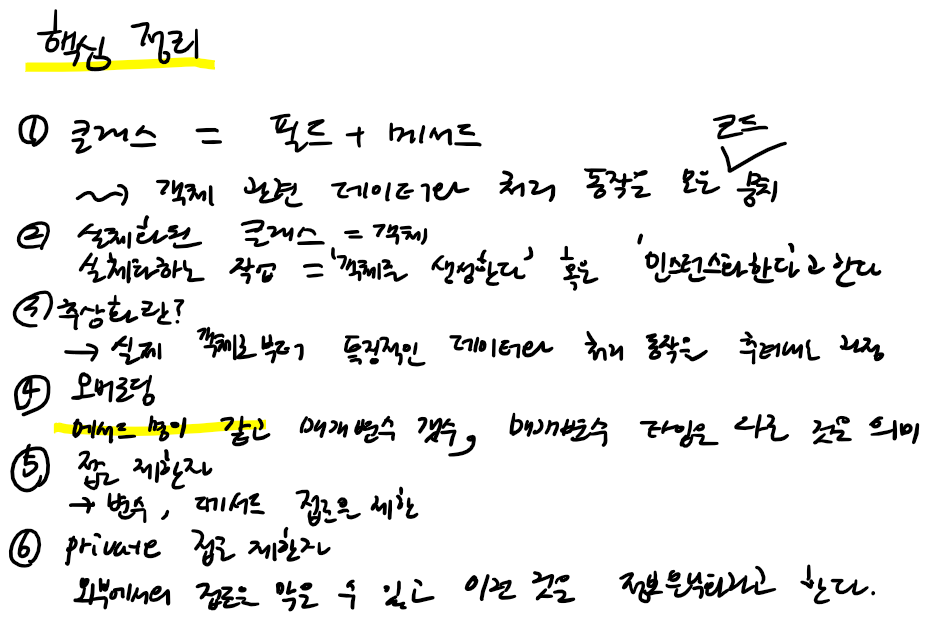 핵심 정리
① 클래스 = 필드 + 메서드
~> 객체 관련 데이터와 처리 동작을 모은 코드 뭉치
② 실체화된 클래스 = 객체
실체화하는 작업 = '객체를 생성한다' 혹은 '인스턴스화한다'고 한다
③ 추상화란?
→ 실제 객체로부터 특징적인 데이터와 처리 동작을 추려내는 과정
④ 오버로딩
메서드 명이 같고 매개변수 갯수, 매개변수 타입은 다른 것을 의미
⑤ 접근 제한자
→ 변수, 메서드 접근을 제한
⑥ private 접근 제한자
외부에서의 접근을 막을 수 있고 이런 것을 정보은닉화라고 한다.